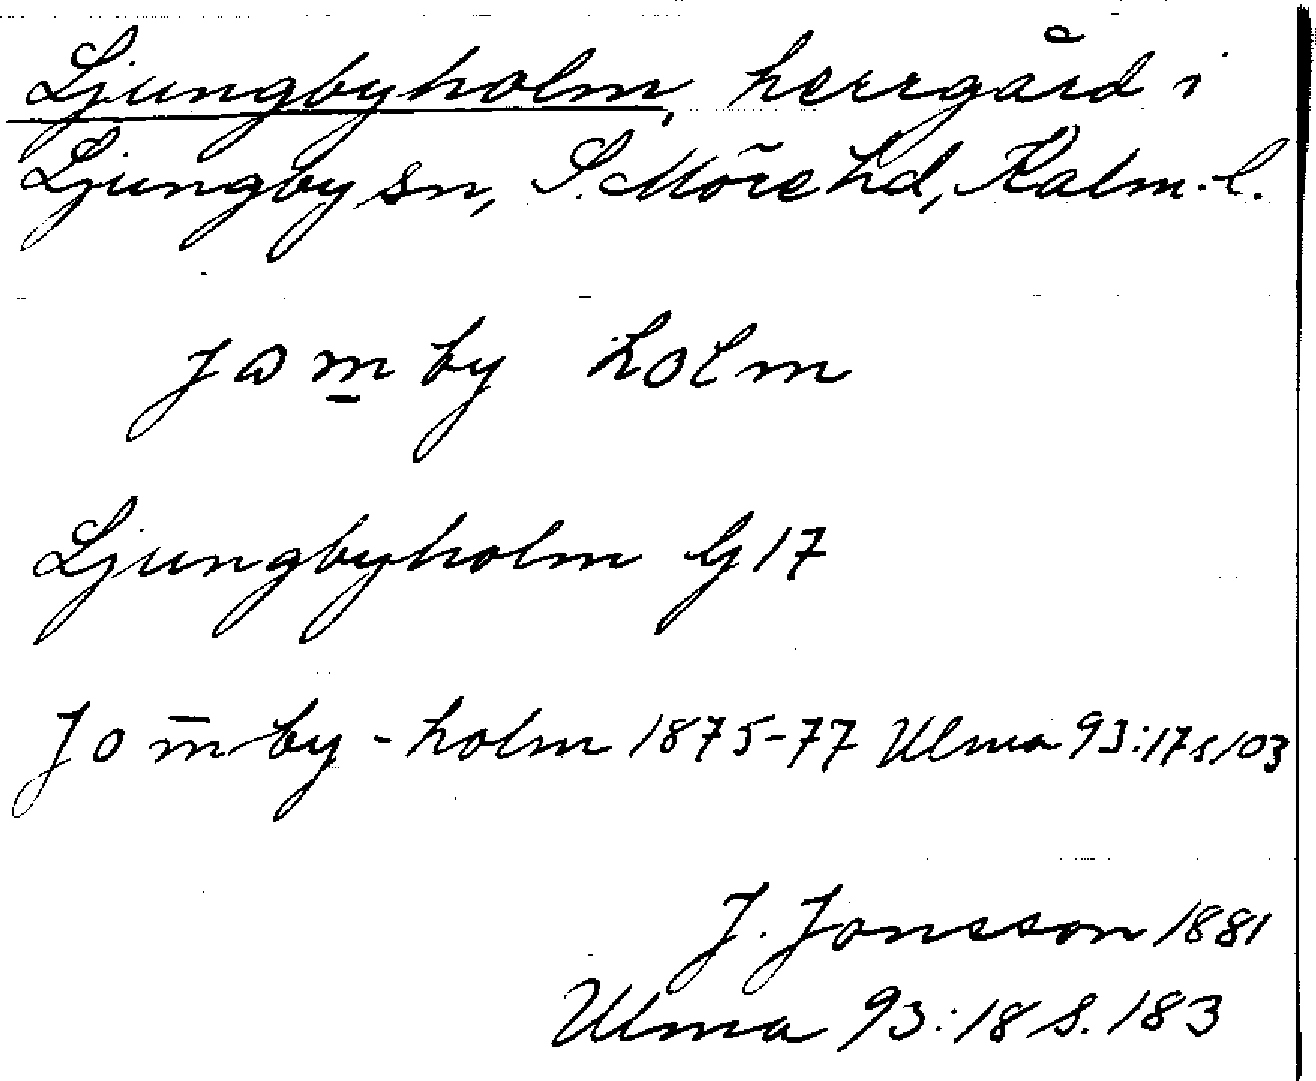 Ljungbyholm, herrgård i
Ljungby sn, S. Möre hd, Kalm. l.
jɷm̲by holm
Ljungbyholm G 17
Jom̄by-holm 1875-77 Ulma 93:17 s 103
J. Jonsson 1881
Ulma 93:18 s. 183